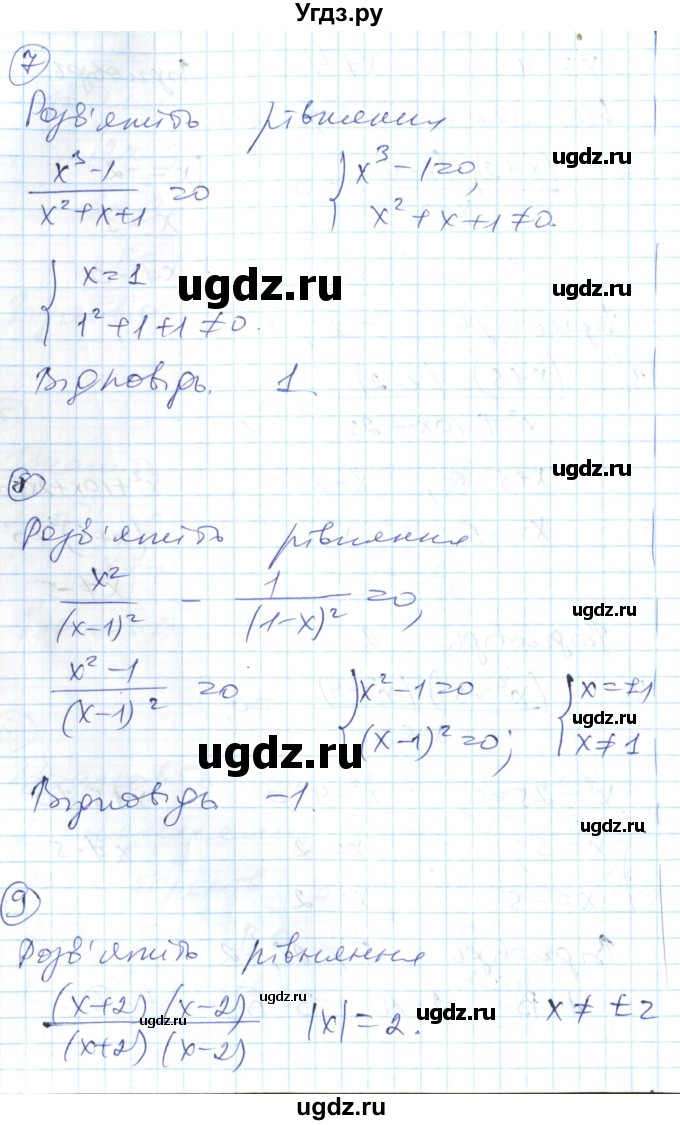 Угдз.ру
7
Розв'яжіть рівняння
ugdz.ru
(x³-1)/(x²+x+1) = 0   { x³-1=0, x²+x+1≠0.
ugdz.ru
{ x=1
1²+1+1≠0.
ugdz.ru
ugdz.ru
Відповідь. 1
ugdz.ru
ugdz.ru
8
Розв'яжіть рівняння
x²/(x-1)² - 1/(1-x)² = 0,
ugdz.ru
(x²-1)/(x-1)² = 0   { x²-1=0 (x-1)²=0;   { x=±1 x≠1
ugdz.ru
ugdz.ru
Відповідь -1.
ugdz.ru
9
Розв'яжіть рівняння
ugdz.ru
((x+2)(x-2))/((x+2)(x-2))   |x|=2.   x≠±2
ugdz.ru
ugdz.ru
ugdz.ru